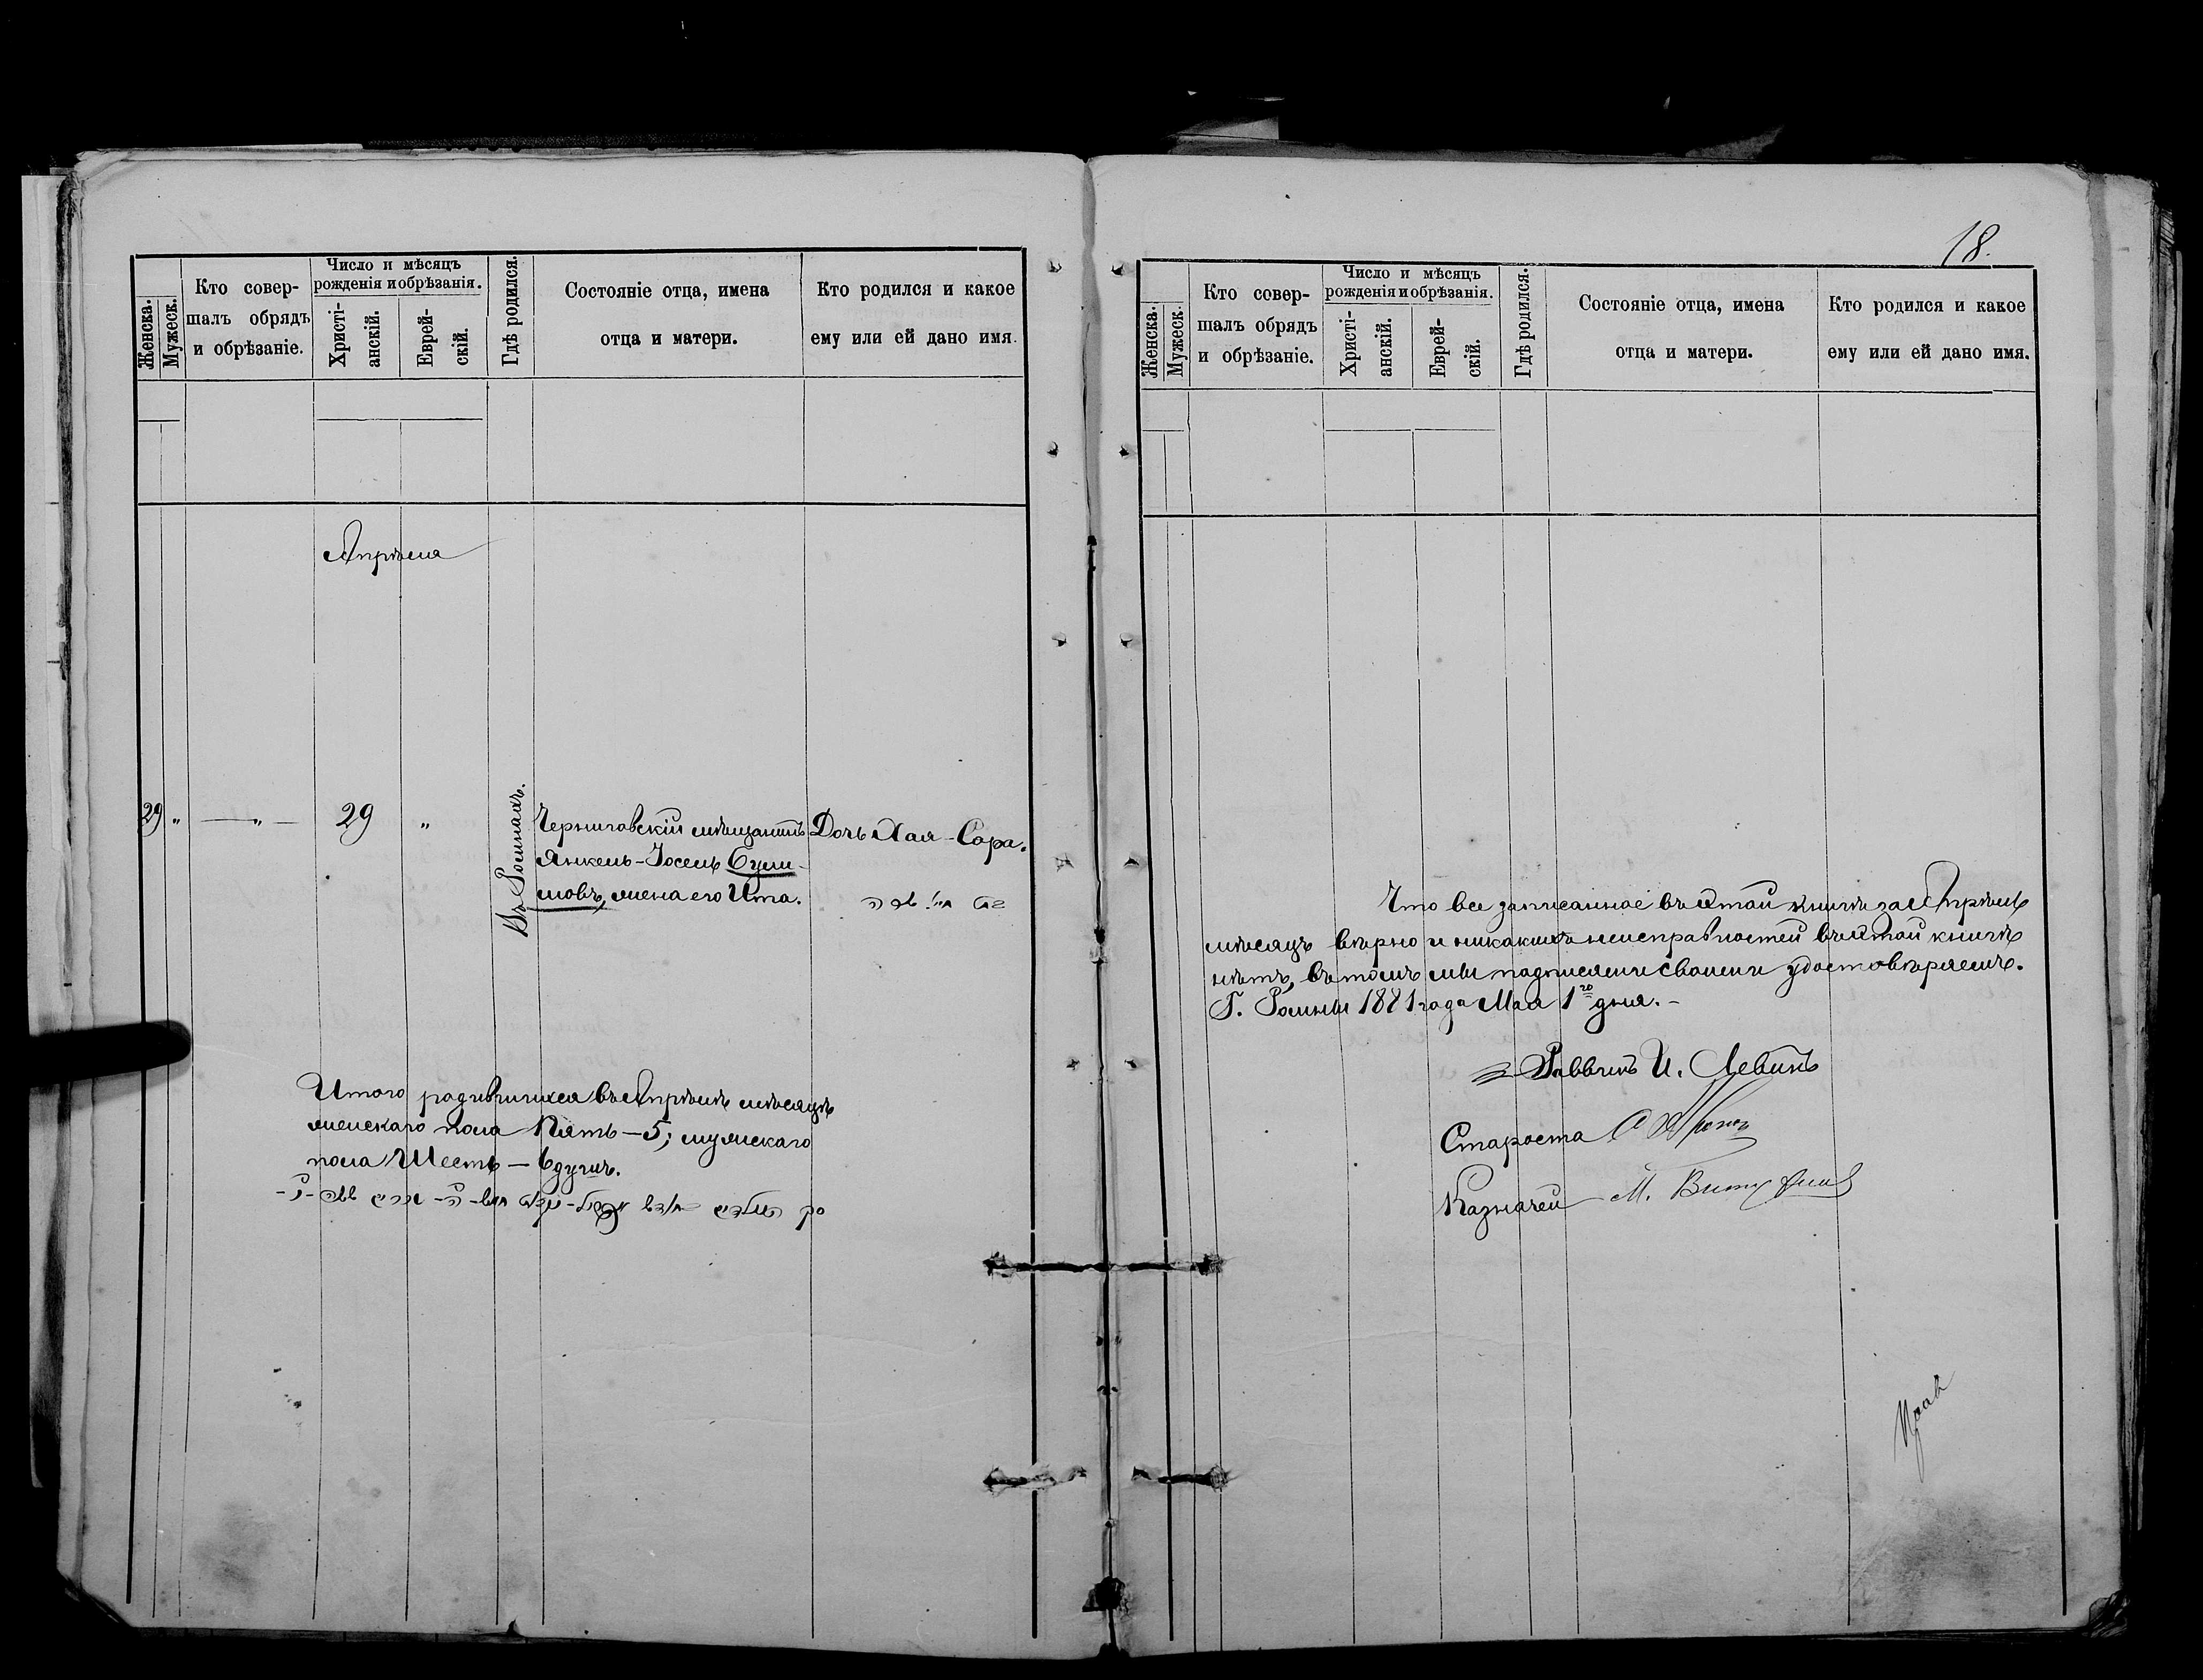 Женска.
Мужеск.
Кто совер-
шалъ обрядъ
и обрѣзаніе.
Число и мѣсяцъ
рожденія и обрѣзанія.
Христі-
анскій.
Еврей-
скій.
Гдѣ родился.
Состояніе отца, имена
отца и матери.
Кто родился и какое
ему или ей дано имя.
Апрѣля
29 " — " — 29 "
Въ Ромнахъ.
Черниговскій мѣщанинъ
Янкель-Іосель
жена его Ита.
Дочь Хая-Сора.
Итого родившихся въ Апрѣлѣ мѣсяцѣ
женскаго пола Пять — 5; мужскаго
пола Шесть — 6 душъ.
18.
Женска.
Мужеск.
Кто совер-
шалъ обрядъ
и обрѣзаніе.
Число и мѣсяцъ
рожденія и обрѣзанія.
Христі-
анскій.
Еврей-
скій.
Гдѣ родился.
Состояніе отца, имена
отца и матери.
Кто родился и какое
ему или ей дано имя.
Что все записанное въ этой книгѣ за Апрѣль
мѣсяцъ вѣрно и никакихъ неисправностей въ этой книгѣ
нѣтъ, въ томъ мы подписями своими удостовѣряемъ.
Г. Ромны 1881 года Мая 1го дня. -
Раввинъ И. Левинъ
Староста
Казначей М.